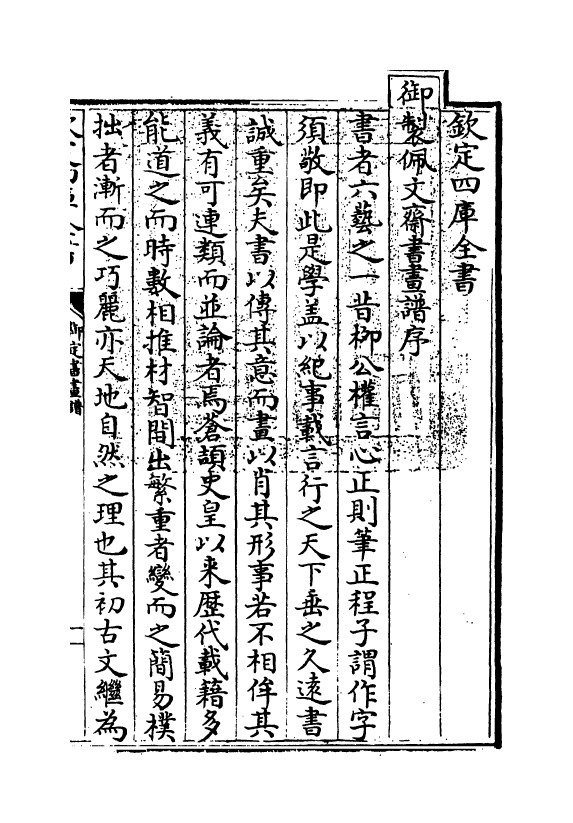 欽定四庫全書
御製佩文齋書畫譜序
書者六藝之一昔柳公權言心正則筆正程子謂作字
須敬即此是學葢以紀事載言行之天下垂之久遠書
誠重矣夫書以傳其意而畫以肖其形事若不相侔其
義有可連類而並論者焉蒼頡史皇以來歴代載籍多
能道之而時數相推材智間出繁重者變而之簡易樸
拙者漸而之巧麗亦天地自然之理也其初古文繼為
御定書畫譜